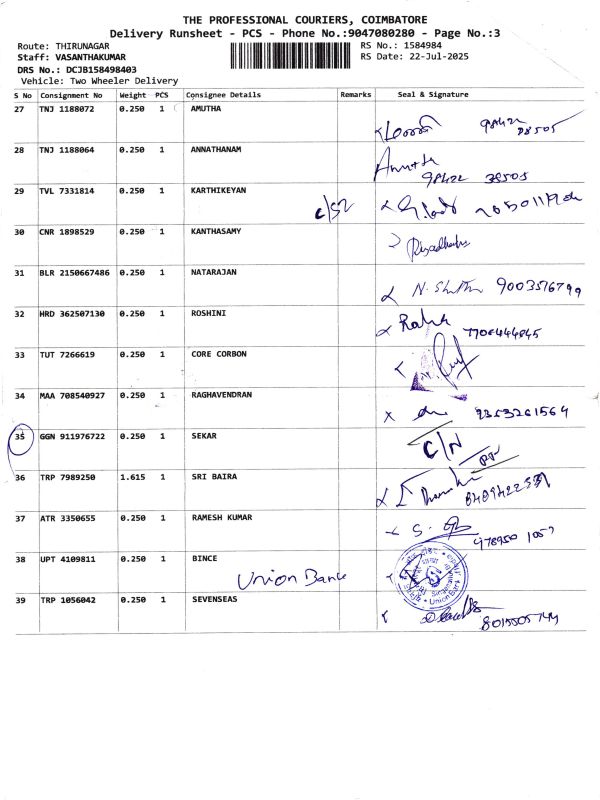 THE PROFESSIONAL COURIERS, COIMBATORE
Delivery Runsheet - PCS - Phone No.:9047080280 - Page No.:3
Route: THIRUNAGAR RS No.: 1584984
Staff: VASANTHAKUMAR RS Date: 22-Jul-2025
DRS No.: DCJB158498403
Vehicle: Two Wheeler Delivery
S No Consignment No Weight PCS Consignee Details Remarks Seal & Signature
27 TNJ 1188072 0.250 1 AMUTHA
28 TNJ 1188064 0.250 1 ANNATHANAM Amutha
98422 38505
29 TVL 7331814 0.250 1 KARTHIKEYAN
30 CNR 1898529 0.250 1 KANTHASAMY
31 BLR 2150667486 0.250 1 NATARAJAN 9003516799
32 HRD 362507130 0.250 1 ROSHINI
33 TUT 7266619 0.250 1 CORE CORBON
34 MAA 708540927 0.250 1 RAGHAVENDRAN 9353261564
35 GGN 911976722 0.250 1 SEKAR C/N
36 TRP 7989250 1.615 1 SRI BAIRA
37 ATR 3350655 0.250 1 RAMESH KUMAR
38 UPT 4109811 0.250 1 BINCE
Union Bance
39 TRP 1056042 0.250 1 SEVENSEAS